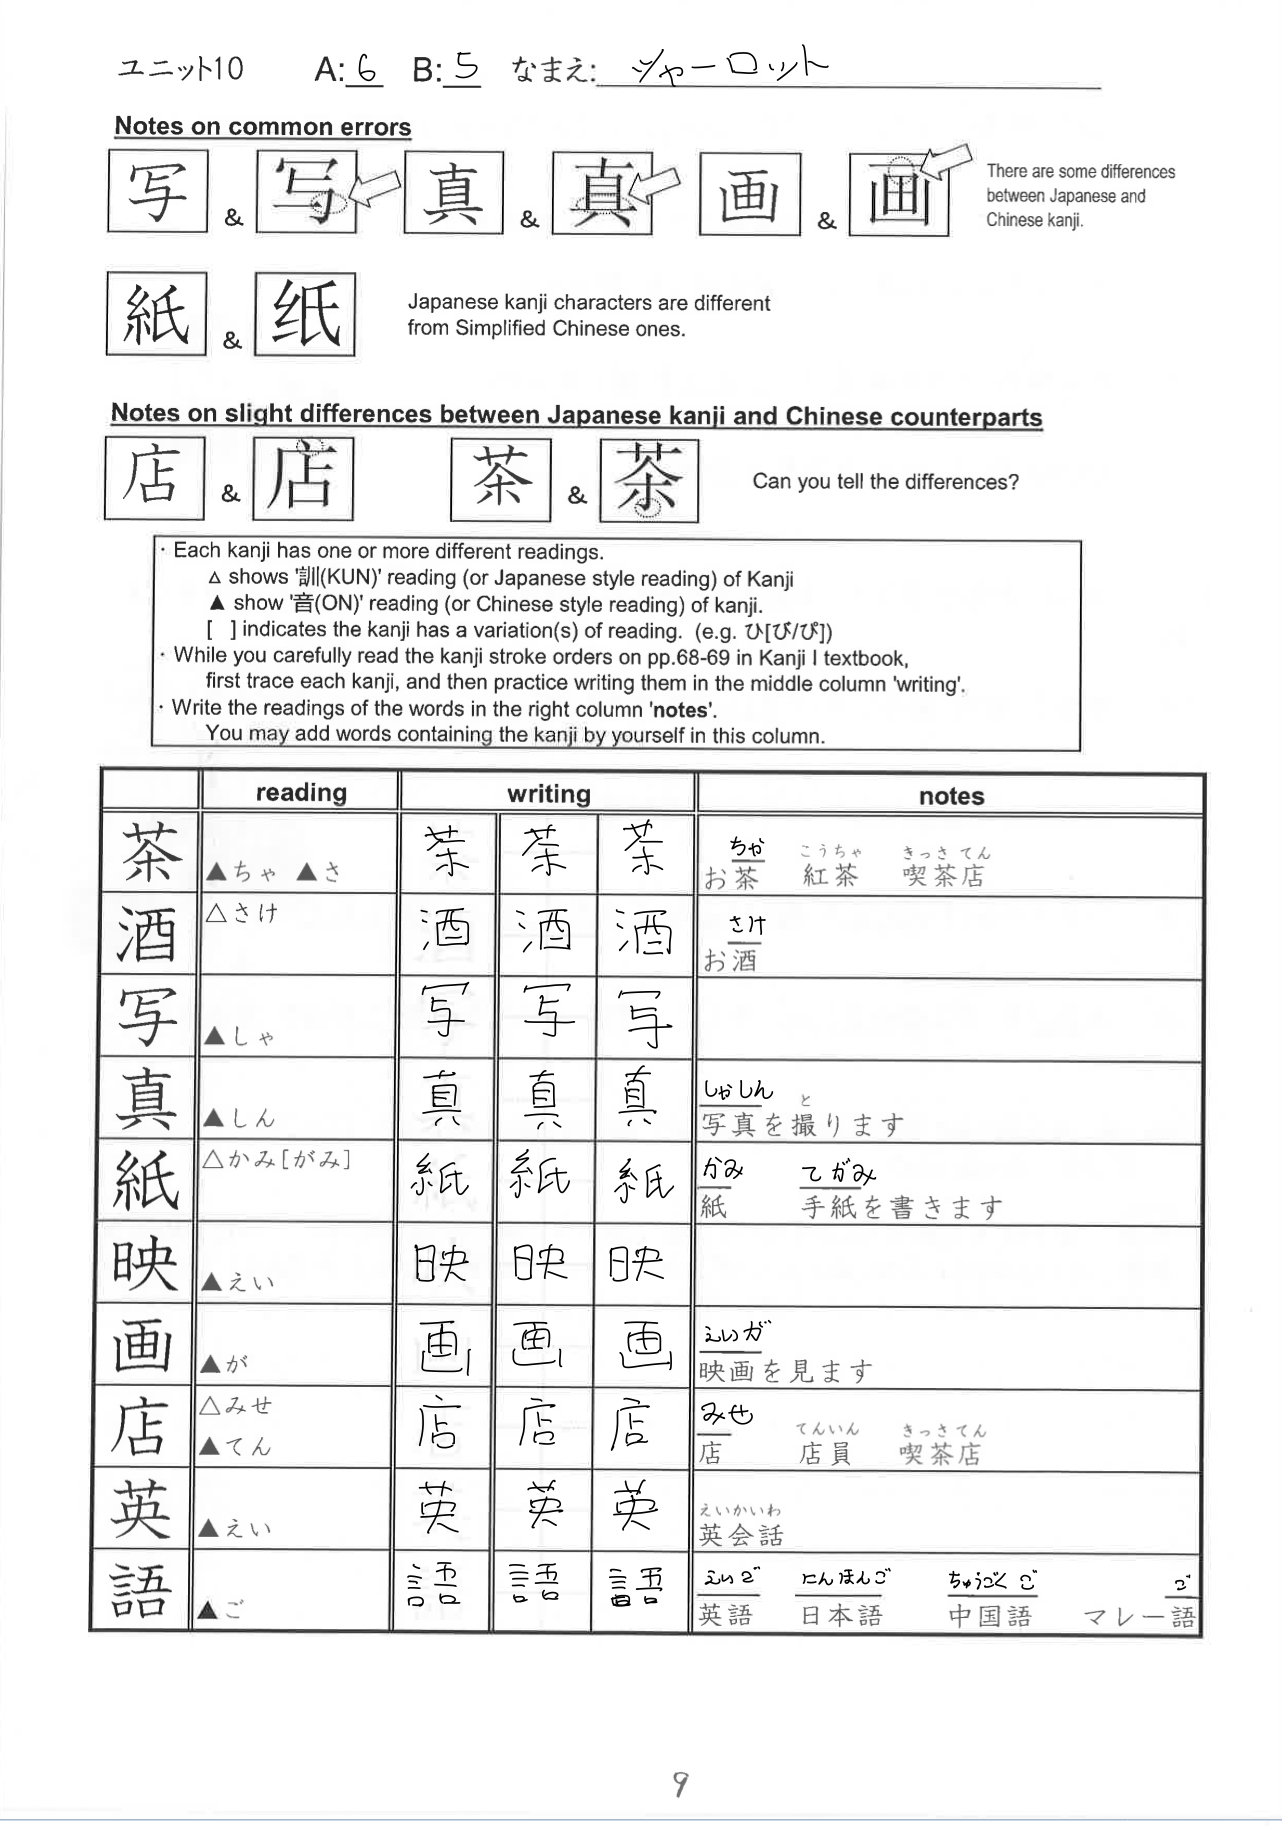 ユニット10 A: 6 B: 5 なまえ: シャーロット
Notes on common errors
写 & 写 真 & 真 画 & 画
There are some differences
between Japanese and
Chinese kanji.
紙 & 纸
Japanese kanji characters are different
from Simplified Chinese ones.
Notes on slight differences between Japanese kanji and Chinese counterparts
店 & 店 茶 & 茶 Can you tell the differences?
· Each kanji has one or more different readings.
△ shows '訓(KUN)' reading (or Japanese style reading) of Kanji
▲ show '音(ON)' reading (or Chinese style reading) of kanji.
[ ] indicates the kanji has a variation(s) of reading. (e.g. ひ[び/ぴ])
· While you carefully read the kanji stroke orders on pp.68-69 in Kanji I textbook,
first trace each kanji, and then practice writing them in the middle column 'writing'.
· Write the readings of the words in the right column 'notes'.
You may add words containing the kanji by yourself in this column.
reading writing notes
茶 ▲ちゃ ▲さ 茶 茶 茶
ちゃ こうちゃ きっさてん
お茶 紅茶 喫茶店
酒 △さけ 酒 酒 酒
さけ
お酒
写 ▲しゃ 写 写 写
真 ▲しん 真 真 真
しゃしん と
写真を撮ります
紙 △かみ[がみ] 紙 紙 紙
かみ てがみ
紙 手紙を書きます
映 ▲えい 映 映 映
画 ▲が 画 画 画
えいが
映画を見ます
店 △みせ
▲てん
店 店 店
みせ てんいん きっさてん
店 店員 喫茶店
英 ▲えい 英 英 英
えいかいわ
英会話
語 ▲ご 語 語 語
えいご にんほんご ちゅうごくご ご
英語 日本語 中国語 マレー語
9